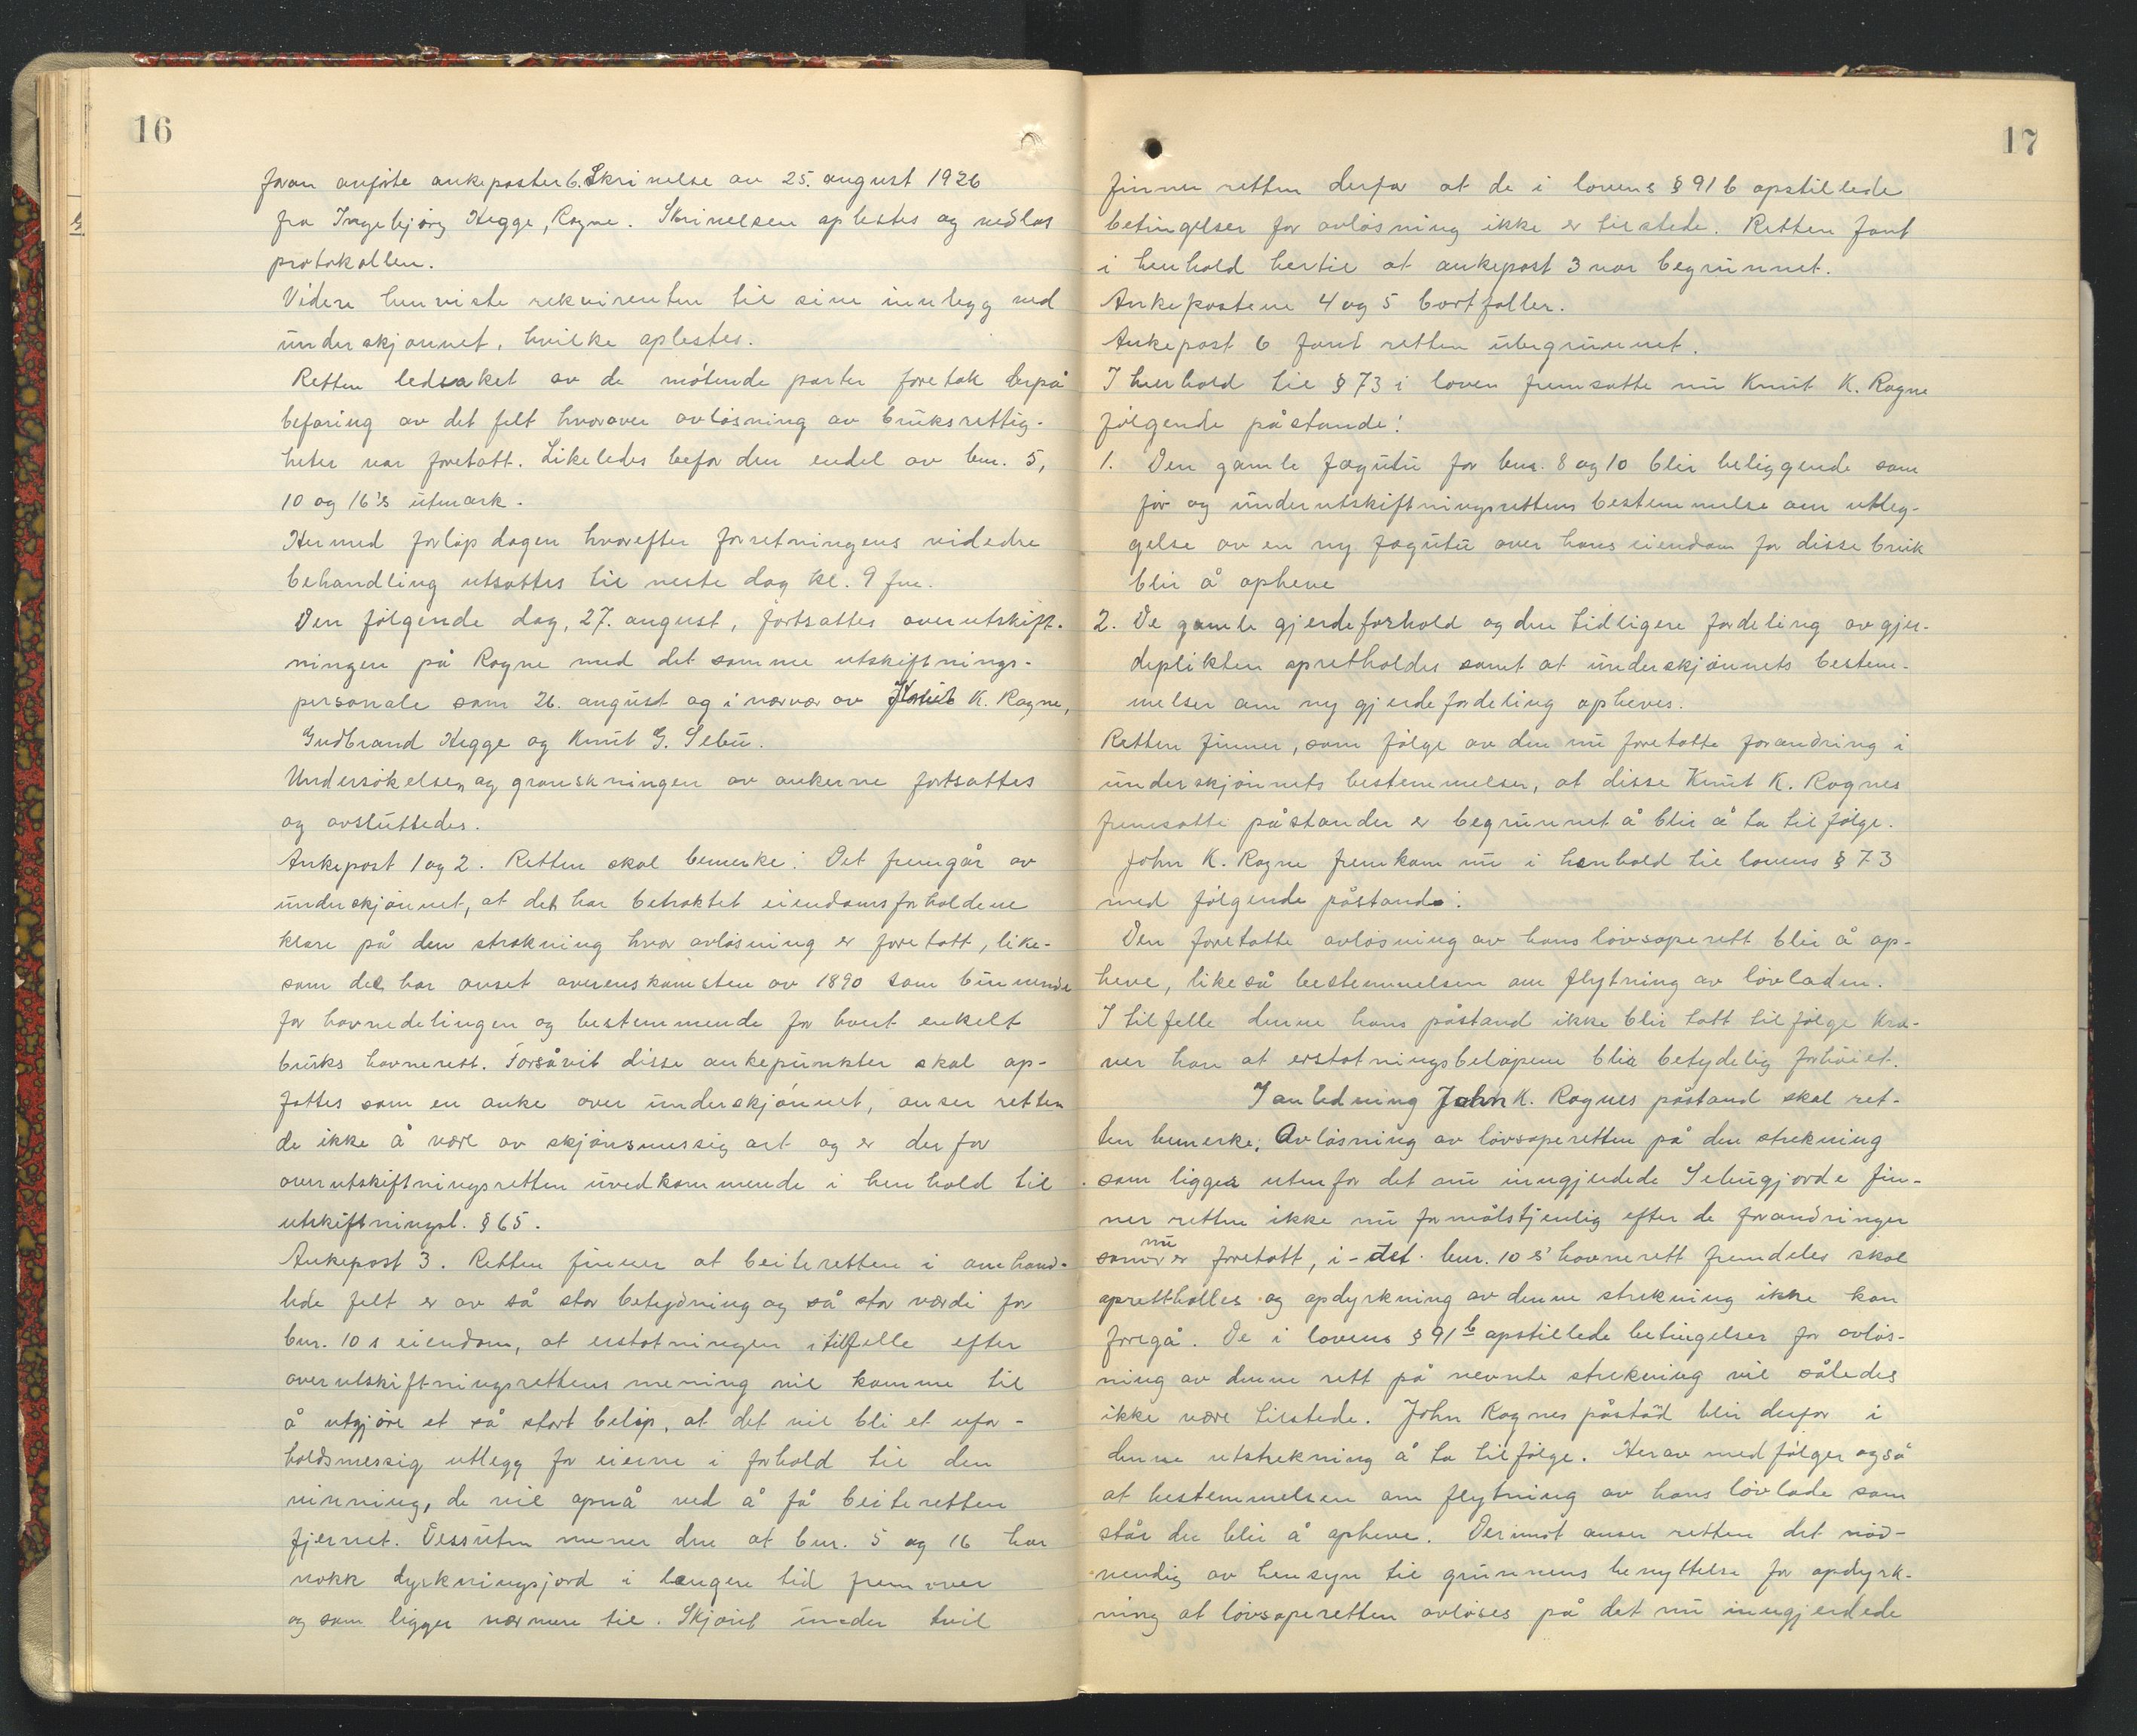 16
foran anførte ankeposter 6. Skrivelse av 25. august 1926
fra Ingebjørg Hegge, Rogne. Skrivelsen oplestes og vedlas
protokollen.
Videre henviste rekvirenten til sine innlegg ved
underskjønnet, hvilke oplestes.
Retten ledsaket av de møtende parter foretok derpå
befaring av det felt hvorover avløsning av bruksrettig-
heter var foretatt. Likeledes befor den endel av bnr. 5,
10 og 16's utmark.
Hermed forløp dagen hvorefter forretningens videre
behandling utsattes til neste dag kl. 9 fm.
Den følgende dag, 27. august, fortsattes overutskift-
ningen på Rogne med det samme utskiftnings-
personale som 26. august og i nærvær av Knut K. Rogne,
Gudbrand Hegge og Knut G. Sebu.
Undersøkelsen og granskningen av ankerne fortsattes
og avsluttedes.
Ankepost 1 og 2. Retten skal bemerke: Det fremgår av
underskjønnet, at det har betraktet eiendomsforholdene
klare på den strekning hvor avløsning er foretatt, like-
som det har anset overenskomsten av 1890 som binnende
for havnedelingen og bestemmende for hvert enkelt
bruks havnerett. Forsåvit disse ankepunkter skal op-
fattes som en anke over underskjønnet, anser retten
de ikke å være av skjønsmessig art og er derfor
overutskiftningsretten uvedkommende i henhold til
utskiftningsl. § 65.
Ankepost 3. Retten finner at beiteretten i omhand-
lede felt er av så stor betydning og så stor værdi for
bnr. 10 s eiendom, at erstatningen i tilfelle efter
overutskiftningsrettens mening vil komme til
å utgjøre et så stort beløp, at det vil bli et ufor-
holdsmessig utlegg for eierne i forhold til den
vinning, de vil opnå ved å få beiteretten
fjernet. Dessuten mener den at bnr. 5 og 16 har
nokk dyrkningsjord i længere tid fremover
og som ligger nærmere til. Skjønt under tvil
17
finner retten derfor at de i lovens § 91 b opstillede
betingelser for avløsning ikke er tilstede. Retten fant
i henhold hertil at ankepost 3 var begrunnet.
Ankepostene 4 og 5 bortfaller.
Ankepost 6 fant retten ubegrunnet.
I henhold til § 73 i loven fremsatte nu Knut K. Rogne
følgende påstande:
1. Den gamle fægutu for bnr. 8 og 10 blir beliggende som
før og underutskiftningsrettens bestemmelse om utleg-
gelse av en ny fægutu over hans eiendom for disse bruk
blir å opheve
2. De gamle gjerdeforhold og den tidligere fordeling av gjer-
deplikten opretholdes samt at underskjønnets bestem-
melser om ny gjerdefordeling opheves.
Retten finner, som følge av den nu foretatte forandring i
underskjønnets bestemmelser, at disse Knut K. Rognes
fremsatte påstander er begrunnet å blir å ta til følge.
John K. Rogne fremkom nu i henhold til lovens § 73
med følgende påstand:
Den foretatte avløsning av hans løvsoperett blir å op-
heve, likeså bestemmelsen om flytning av løvladen.
I tilfelle denne hans påstand ikke blir tatt til følge kræ-
ver han at erstatningsbeløpene blir betydelig forhøiet.
I anledning John K. Rognes påstand skal ret-
ten bemerke: Avløsning av løvsoperetten på den strekning
som ligger utenfor det nu inngjerdede Sebugjorde fin-
ner retten ikke nu formålstjenlig efter de forandringer
som nu er foretatt, i-det bnr. 10 s' havnerett fremdeles skal
oprettholles og opdyrkning av denne strekning ikke kan
foregå. De i lovens § 91 b opstillede betingelser for avløs-
ning av denne rett på nevnte strekning vil således
ikke være tilstede. John Rognes påstad blir derfor i
denne utstrekning å ta til følge. Herav medfølger også
at bestemmelsen om flytning av hans løvlade som
står der blir å opheve. Derimot anser retten det nød-
vendig av hensyn til grunnens benyttelse for opdyrk-
ning at løvsoperetten avløses på det nu inngjerdede